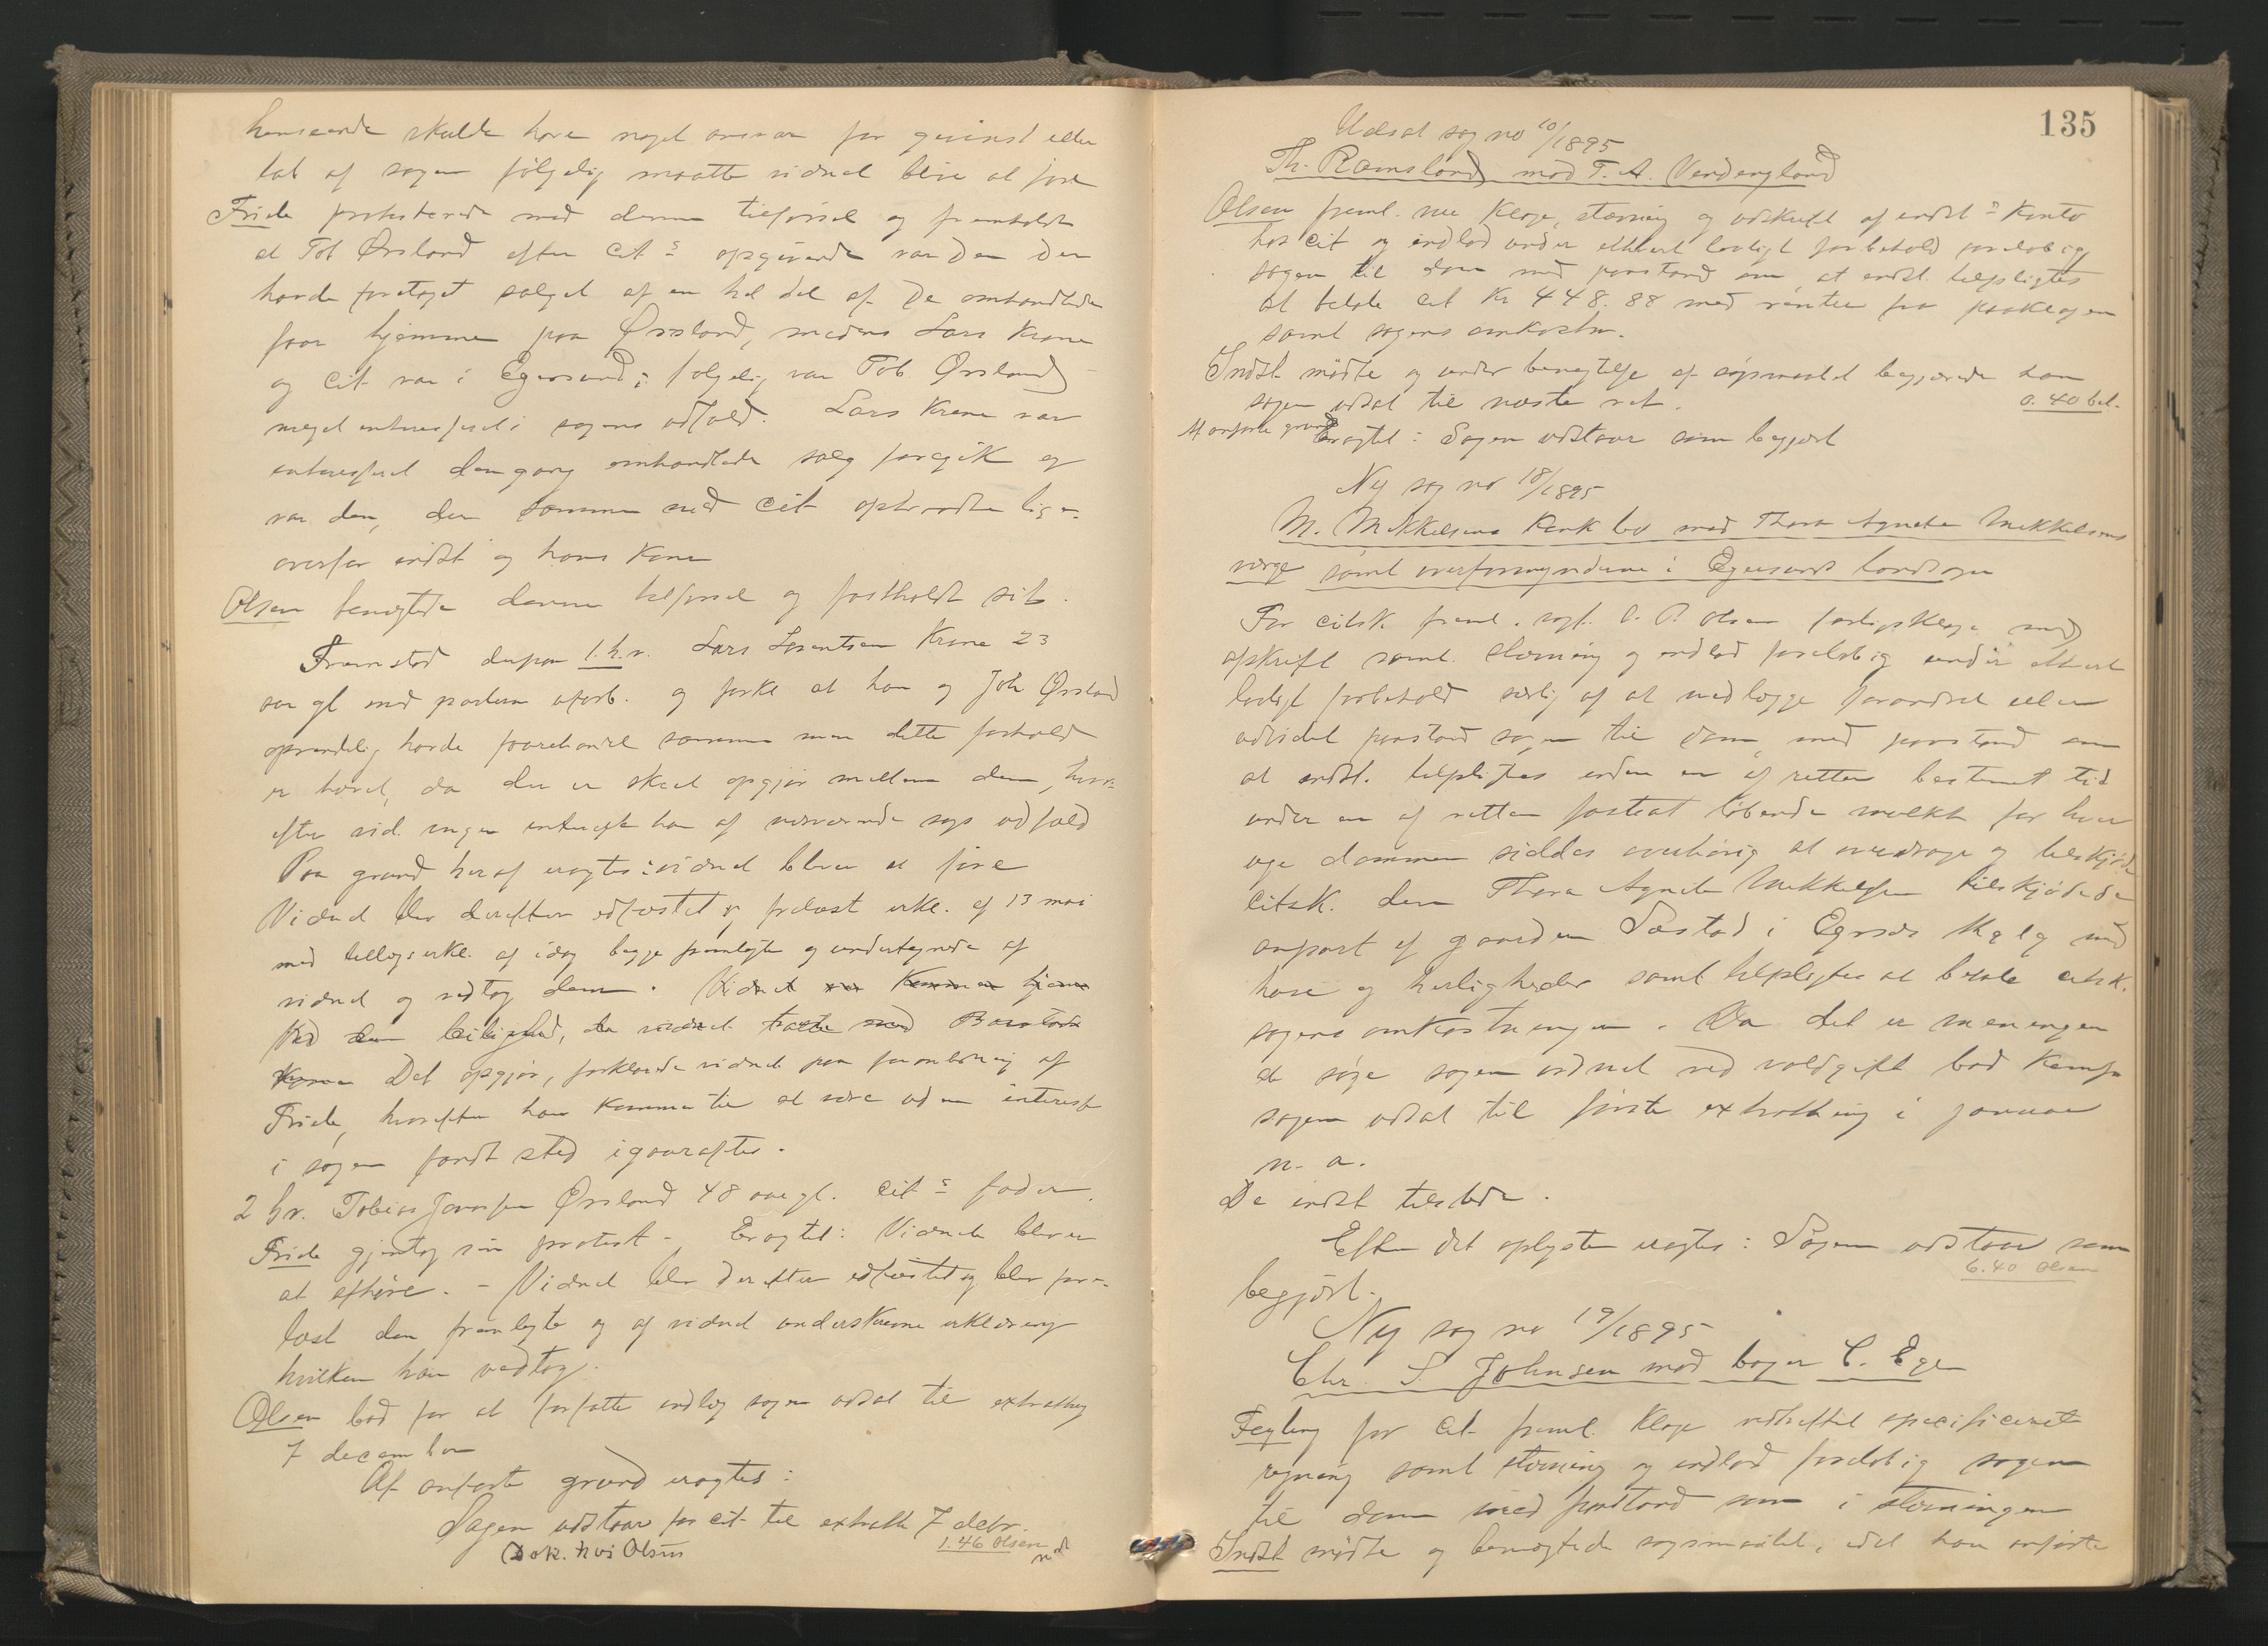 henseende skulde have noget ansvar for gevinst eller
tab af sagen følgelig maatte vidnet blive at føre
Friele protesterede mod denne tilførsel og fremholdt
at Tob Ørsland efter Cit s opgivende var den der
havde foretaget salget af en hel del af de omhandlede
faar hjemme paa Ørsland, medens Lars Krane
og Cit var i Egersund; følgelig var Tob Ørsland
meget interesseret i sagens udfald. Lars Krane var
interesseret dengang omhandlede salg foregik og
var den, der sammen med Cit optraadte lige-
overfor indst og hans kone
Olsen benegtede denne tilførsel og fastholdt sit.
Fremstod derpaa 1.h.v. Lars Lorentsen Krane 23
aar gl med parterne uforb. og forkl at han og Tob Ørsland
oprindelig havde faarehandel sammen men dette forhold
er hævet, da der er skeet opgjør mellem dem, hvor-
efter vid. ingen interesse har af nærværende sags udfald
Paa grund heraf eragtes: vidnet bliver at føre
Vidnet blev derefter edfæstet og forelæst erkl. af 13 mai
med tillægserkl. af idag begge fremlagte og undertegnede af
vidnet og vedtog dem. Vidnet
Ved den leilighed, da vidnet
Det opgjør, forklarede vidnet paa foranledning af
Friele, hvorefter han kommer til at være uden interesse
i sagen fandt sted igaaraftes.
2 hv. Tobias Ørsland 48 aar gl. Cit s fader.
Friele gjentog sin protest - Eragtet: Vidnet bliver
at afhøre. - Vidnet blev derefter edfæstet og blev fore-
læst den fremlagte og af vidnet underskrevne erklæring
hvilken han vedtog.
Olsen bad for at forfatte indlæg sagen udsat til extrathing
7 december
Af anførte grund eragtes:
Sagen udstaar for cit til extrath 7 decbr.
Dok. hos Olsen 1.46 Olsen
135
Udsat sag no 10/1895
Th. Ramsland mod T. A.
Olsen freml. nu klage, stævning og udskrift af indst s konto
hos cit og indlod under ethvert lovligt forbehold foreløbig
sagen til dom med paastand om at indst. tilpligtes
at betale cit Kr 448.88 med renter fra paaklagen
samt sagens omkostn.
Indst mødte og under benegtelse af søgsmaalet begjærede han
sagen udsat til næste ret. 0.40 bet.
Af anførte grund Eragtet: Sagen udstaar som begjært
Ny sag no 18/1895
M. Mikkelsens konkbo mod Thora Agnete Mikkelsens
værge samt overformynderne i Egersunds landsogn
For citsk freml. sagf. O. P. Olsen forligsklage med
afskrift samt stævning og indlod foreløbig under ethvert
lovligt forbehold særlig af at nedlægge forandret eller
udvidet paastand sagen til dom, med paastand om
at indst. tilpligtes inden en af retten bestemt tid
under en af retten fastsat løbende mulkt for hver
uge dommen siddes overhørig at overdrage og tilskjøde
citsk. den Thora Agnete Mikkelsen tilskjødede
anpart af gaarden Sæstad i Egersds med
huse og herligheder samt tilpligtes at betale citsk.
sagens omkostninger. Da det er meningen
at søge sagen ordnet ved voldgift bad komp
sagen udsat til første extrathing i januar
n. a.
De indst tilstede.
Efter det oplyste eragtes: Sagen udstaar som
begjært. 6.40 Olsen
Ny sag no 19/1895
Chr. S. Johnsen mod bager C. Ege
Feyling for cit freml. klage vedheftet specificeret
regning samt stævning og indlod foreløbig sagen
til dom med paastand som i stævningen
Indst mødte og benegtede søgsmaalet, idet han anførte